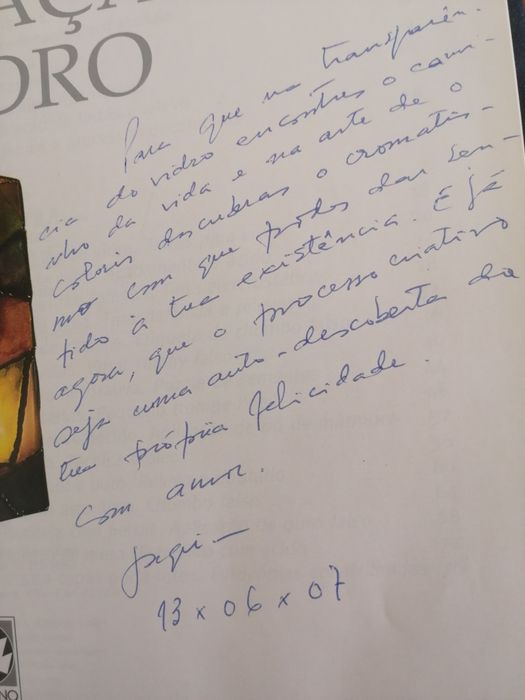 AÇA
DRO
Para que na transparên-
cia do vidro encontres o cami-
nho da vida e na arte de o
colorir descubras o cromatis-
mo com que podes dar sen-
tido à tua existência. E já
agora, que o processo criativo
seja uma auto-descoberta da
tua própria felicidade.
Com amor.
13 x 06 x 07
NO